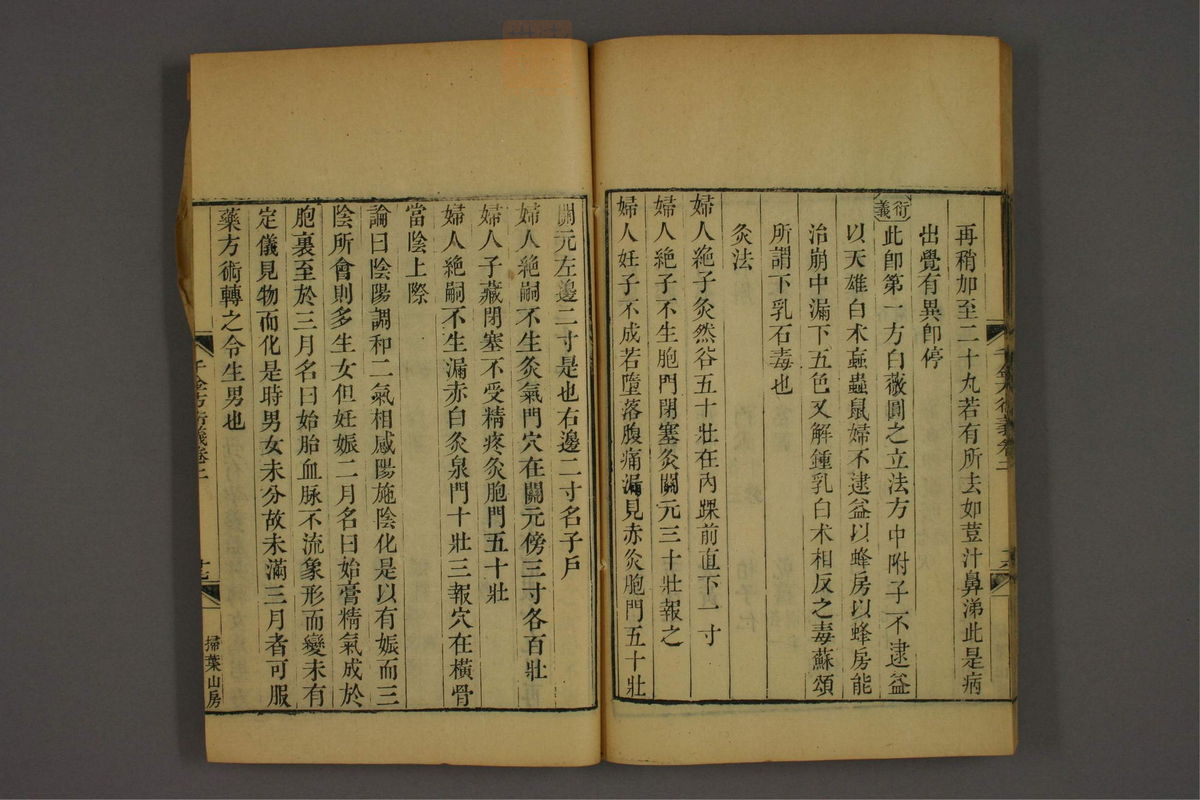 再稍加至二十丸若有所去如荳汁鼻涕此是病
出覺有異卽停
衍義
此卽第一方白薇圓之立法方中附子不逮益
以天雄白朮䖟蟲鼠婦不逮益以蜂房以蜂房能
治崩中漏下五色又解鍾乳白朮相反之毒蘇頌
所謂下乳石毒也
灸法
婦人絶子灸然谷五十壯在內踝前直下一寸
婦人絶子不生胞門閉塞灸關元三十壯報之
婦人妊子不成若墮落腹痛漏見赤灸胞門五十壯
關元左邊二寸是也右邊二寸名子戶
婦人絶嗣不生灸氣門穴在關元傍三寸各百壯
婦人子藏閉塞不受精疼灸胞門五十壯
婦人絶嗣不生漏赤白灸泉門十壯三報穴在橫骨
當陰上際
論曰陰陽調和二氣相感陽施陰化是以有娠而三
陰所會則多生女但妊娠二月名曰始膏精氣成於
胞裏至於三月名曰始胎血脉不流象形而變未有
定儀見物而化是時男女未分故未滿三月者可服
藥方術轉之令生男也
千金方衍義卷二
十七
掃葉山房